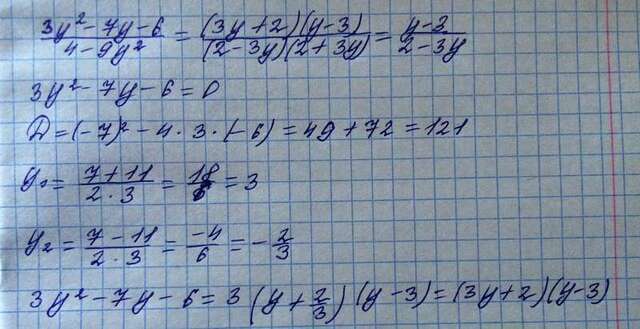 (3y² - 7y - 6)/(4 - 9y²) = ((3y + 2)(y - 3))/((2 - 3y)(2 + 3y)) = (y - 3)/(2 - 3y)
3y² - 7y - 6 = 0
D = (-7)² - 4 · 3 · (-6) = 49 + 72 = 121
y₁ = (7 + 11)/(2 · 3) = 18/6 = 3
y₂ = (7 - 11)/(2 · 3) = -4/6 = -2/3
3y² - 7y - 6 = 3(y + 2/3)(y - 3) = (3y + 2)(y - 3)